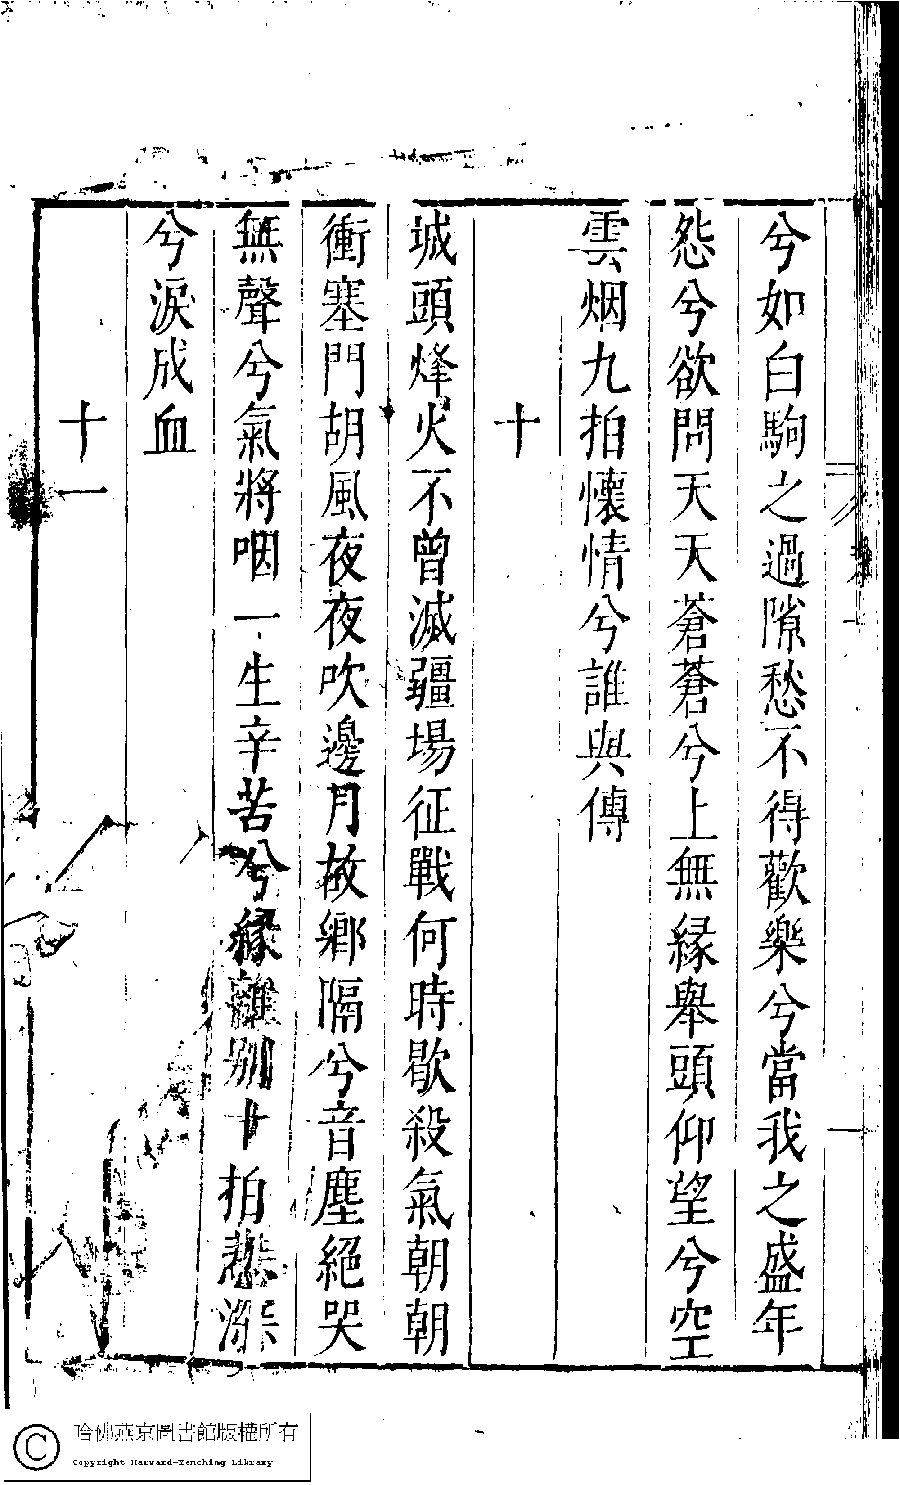 兮如白駒之過隙愁不得歡樂兮當我之盛年
怨兮欲問天天蒼蒼兮上無緣舉頭仰望兮空
雲烟九拍懷情兮誰與傳
十
城頭烽火不曾滅疆場征戰何時歇殺氣朝朝
衝塞門胡風夜夜吹邊月故鄉隔兮音塵絕哭
無聲兮氣將咽一生辛苦兮緣離別十拍悲深
兮淚成血
十一
哈佛燕京圖書館版權所有
Copyright Harvard-Yenching Library